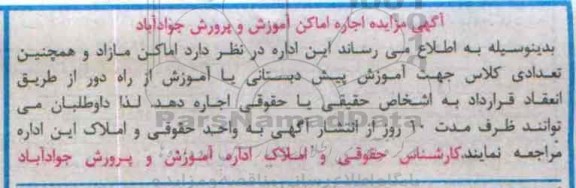 آگهی مزایده اجاره اماکن آموزش و پرورش جوادآباد
بدینوسیله به اطلاع می رساند این اداره در نظر دارد اماکن مازاد و همچنین
تعدادی کلاس جهت آموزش پیش دبستانی یا آموزش از راه دور از طریق
انعقاد قرارداد به اشخاص حقیقی یا حقوقی اجاره دهد. لذا داوطلبان می
توانند ظرف مدت ۱۰ روز از انتشار آگهی به واحد حقوقی و املاک این اداره
مراجعه نمایند.کارشناس حقوقی و املاک اداره آموزش و پرورش جوادآباد
ParsNamadData